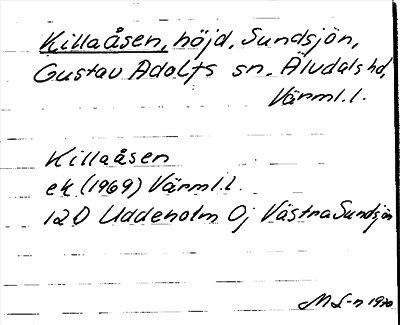 Killaåsen, höjd, Sundsjön,
Gustav Adolfs sn. Älvdals hd,
Värml.l.
Killaåsen
ek (1969) Värml.l.
12D Uddeholm 0j Västra Sundsjön
M L-n 1970